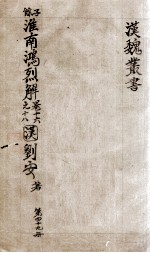 漢魏叢書
子餘
淮南鴻烈解
卷十六
之十八
漢劉安著
第四十九冊